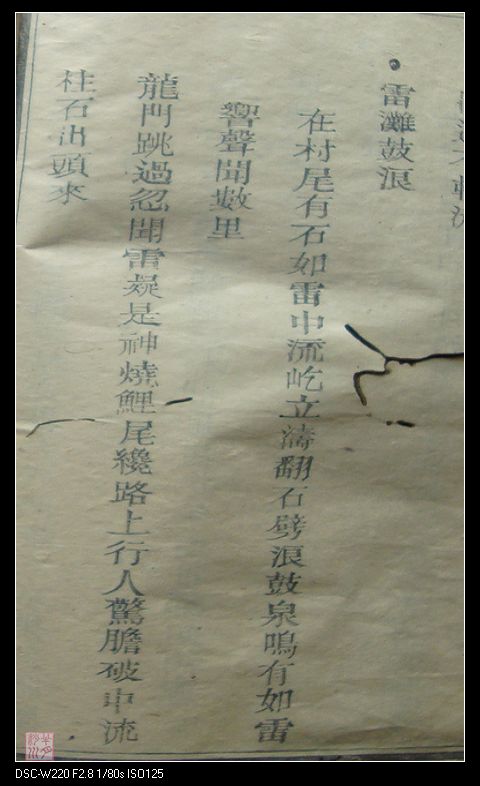 雷灘鼓浪
在村尾有石如雷中流屹立濤翻石劈浪鼓泉鳴有如雷
響聲聞數里
龍門跳過忽聞雷疑是神燒鯉尾纔路上行人驚膽破中流
柱石出頭來
DSC-W220 F2.8 1/80s ISO125